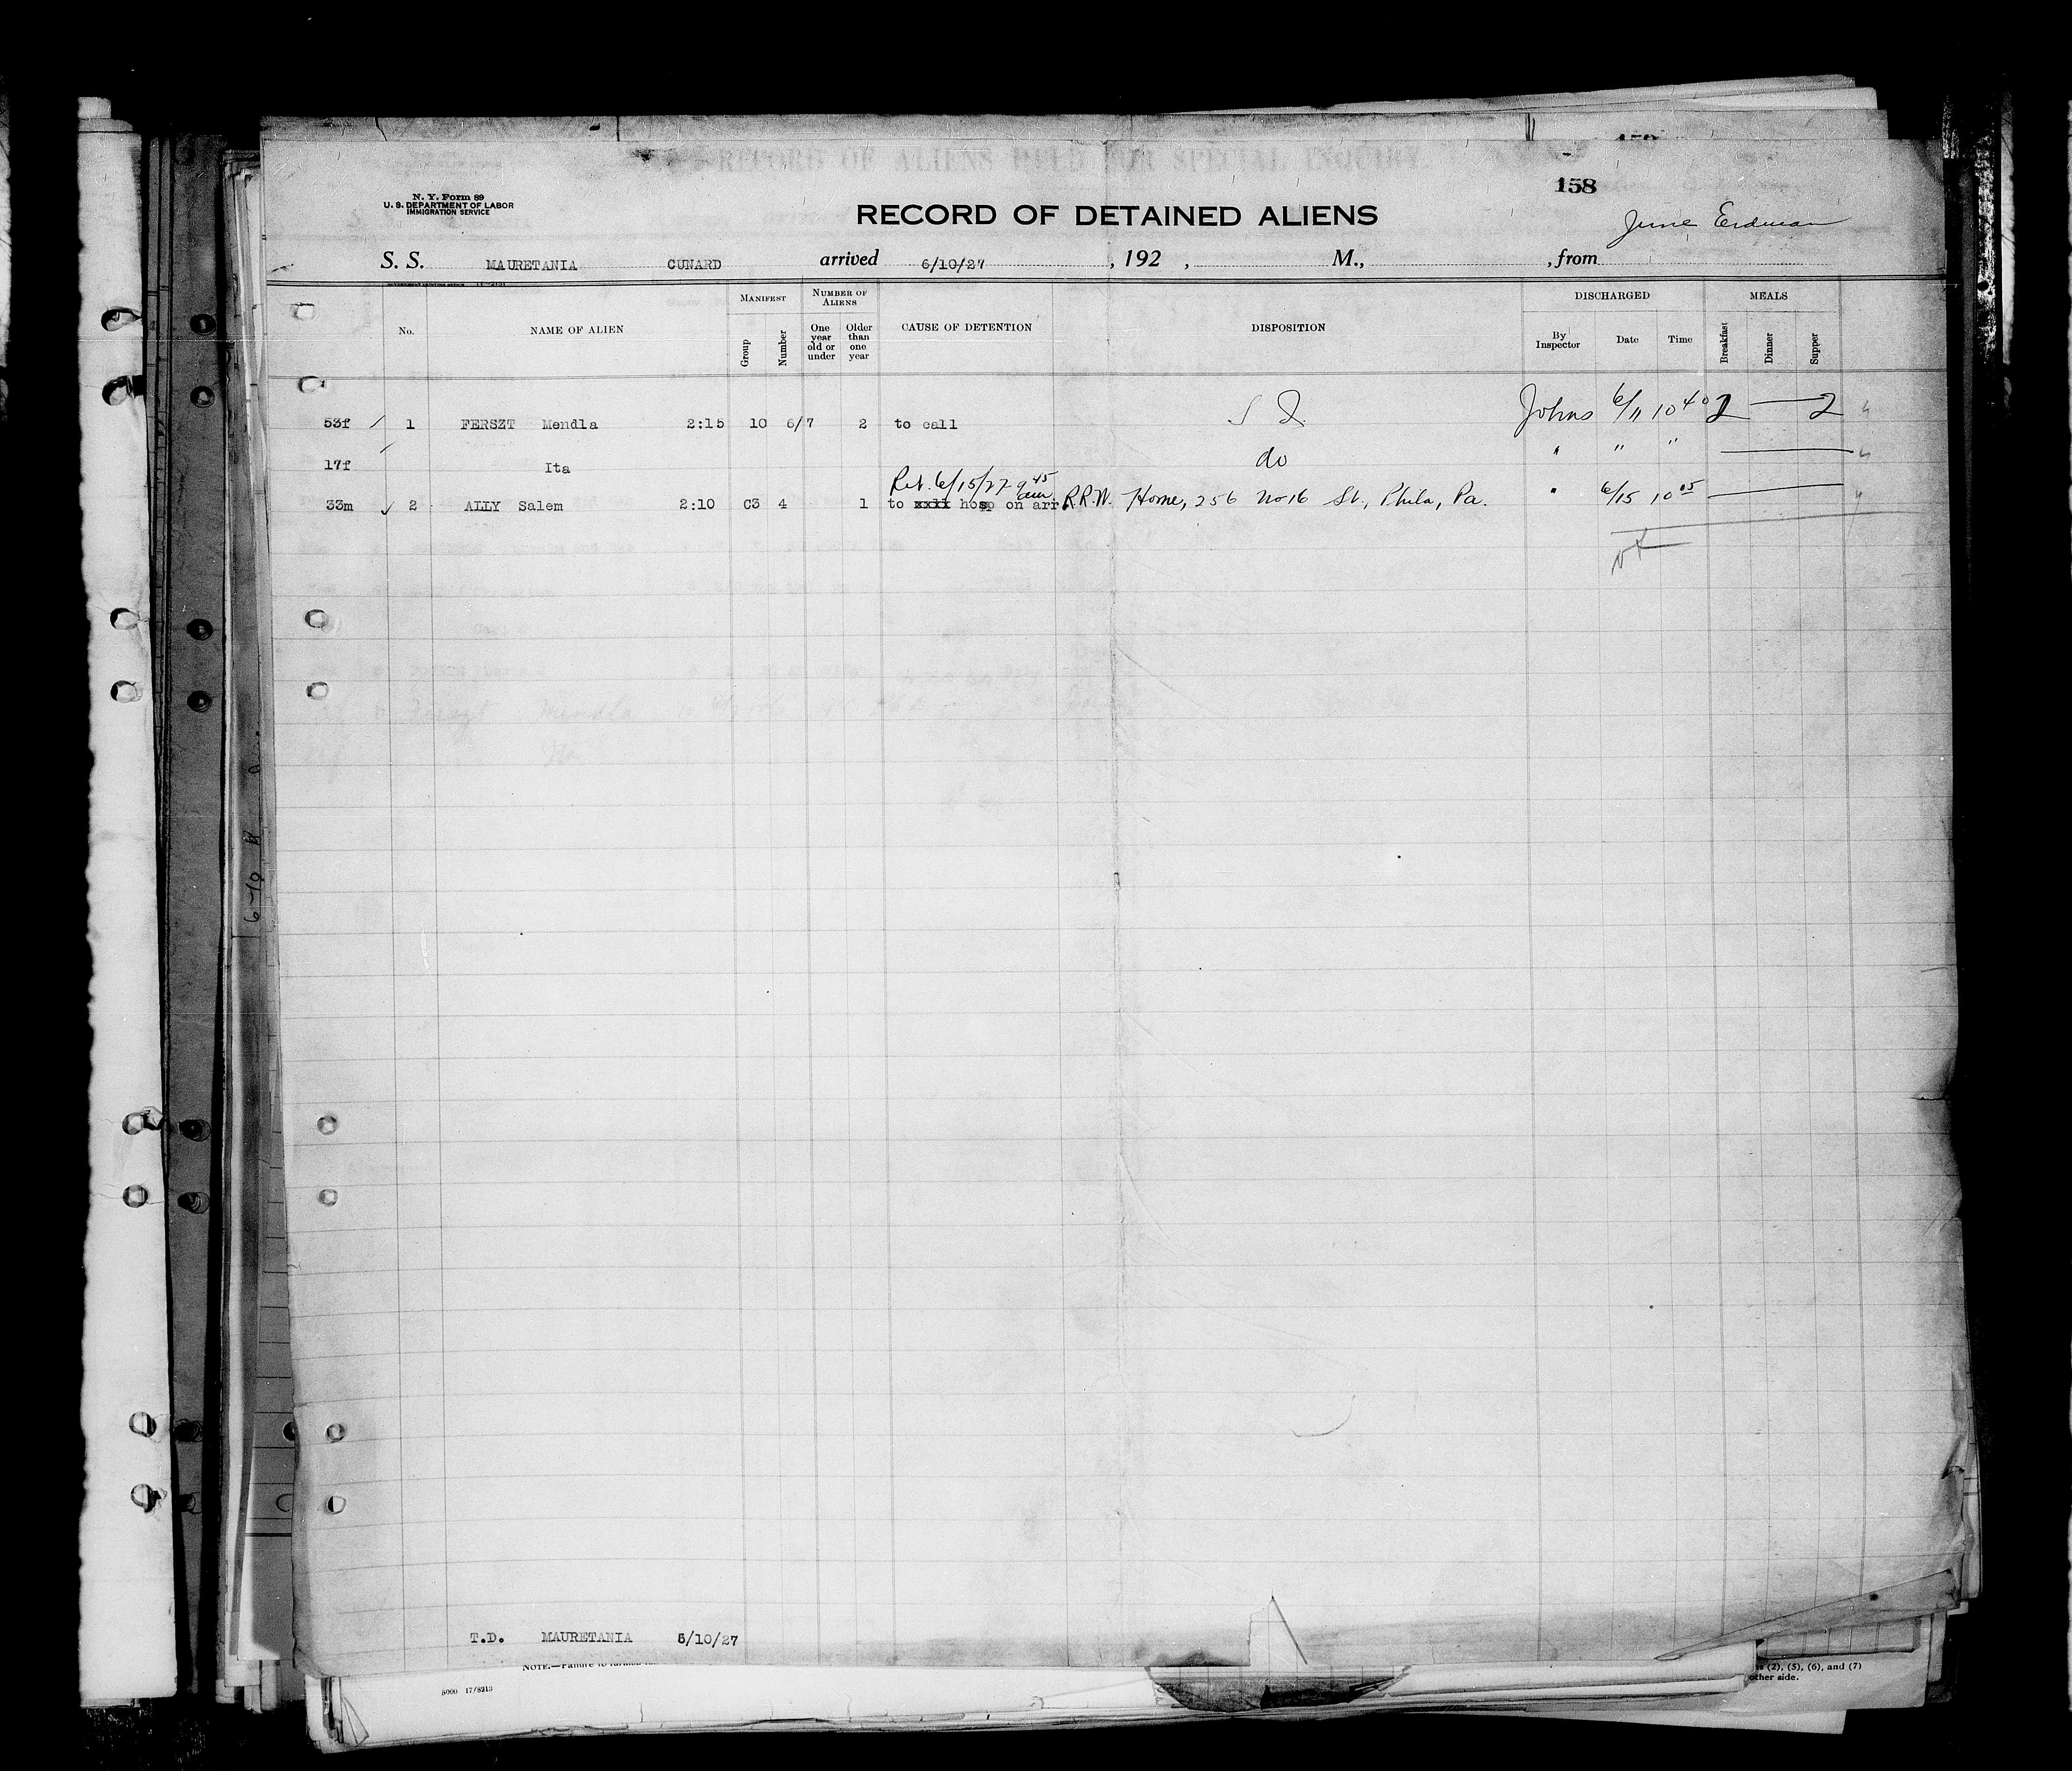 158
N. Y. Form 89
U. S. DEPARTMENT OF LABOR
IMMIGRATION SERVICE
RECORD OF DETAINED ALIENS
June Erdman
S. S. MAURETANIA CUNARD arrived 6/10/27 , 192 , M., , from
No. NAME OF ALIEN MANIFEST Group Number NUMBER OF ALIENS One year old or under Older than one year CAUSE OF DETENTION DISPOSITION DISCHARGED By Inspector Date Time MEALS Breakfast Dinner Supper
53f 1 FERSZT Mendla 2:15 10 6/7 2 to call S I. Johns 6/11 10 40 2 2
17f Ita do " " "
Ret. 6/15/27 9 45 am.
33m 2 ALLY Salem 2:10 C3 4 1 to xxxx hosp on arr. R.R.W. Home, 256 No 16 St., Phila, Pa. " 6/15 10 05
6-10
T.D. MAURETANIA 5/10/27
5000 17/8213
(2), (5), (6), and (7)
other side.